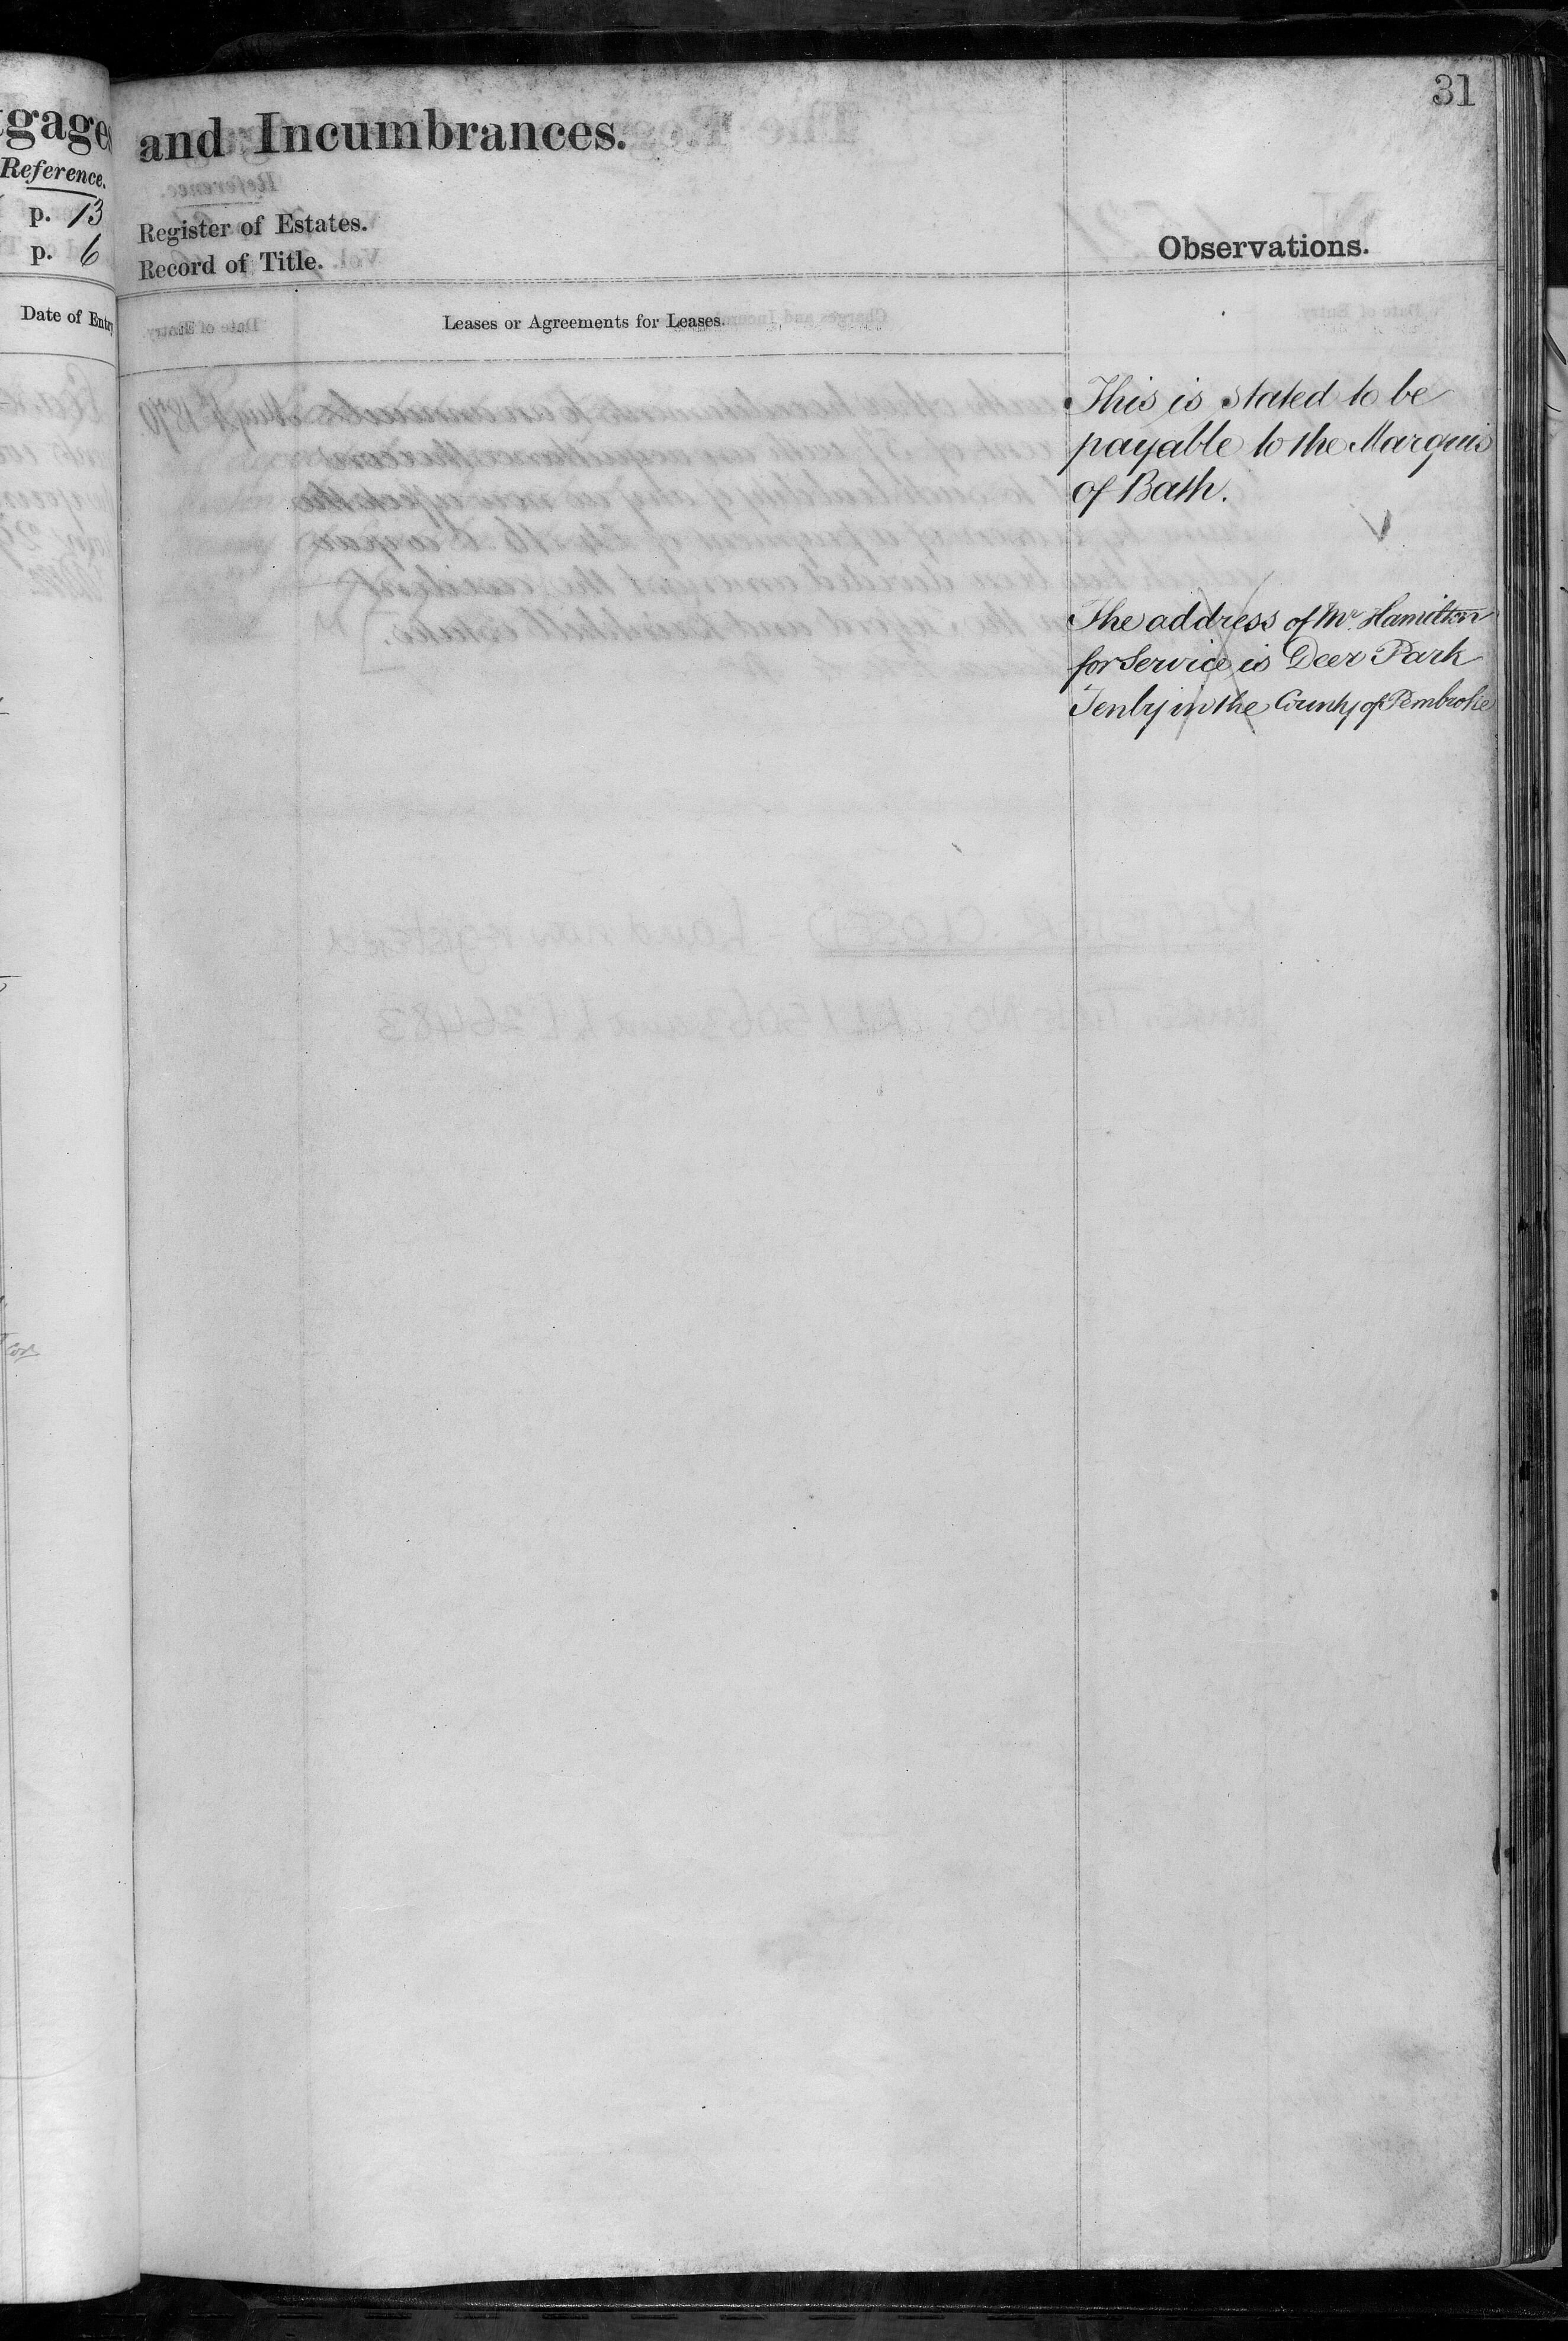 31
tgages
and Incumbrances.
Reference.
p. 13
p. 6
Register of Estates.
Record of Title.
Observations.
Date of Entry
Leases or Agreements for Leases.
This is stated to be
payable to the Marquis
of Bath.
The address of Mr. Hamilton
for Service is Deer Park
Tenby in the County of Pembroke